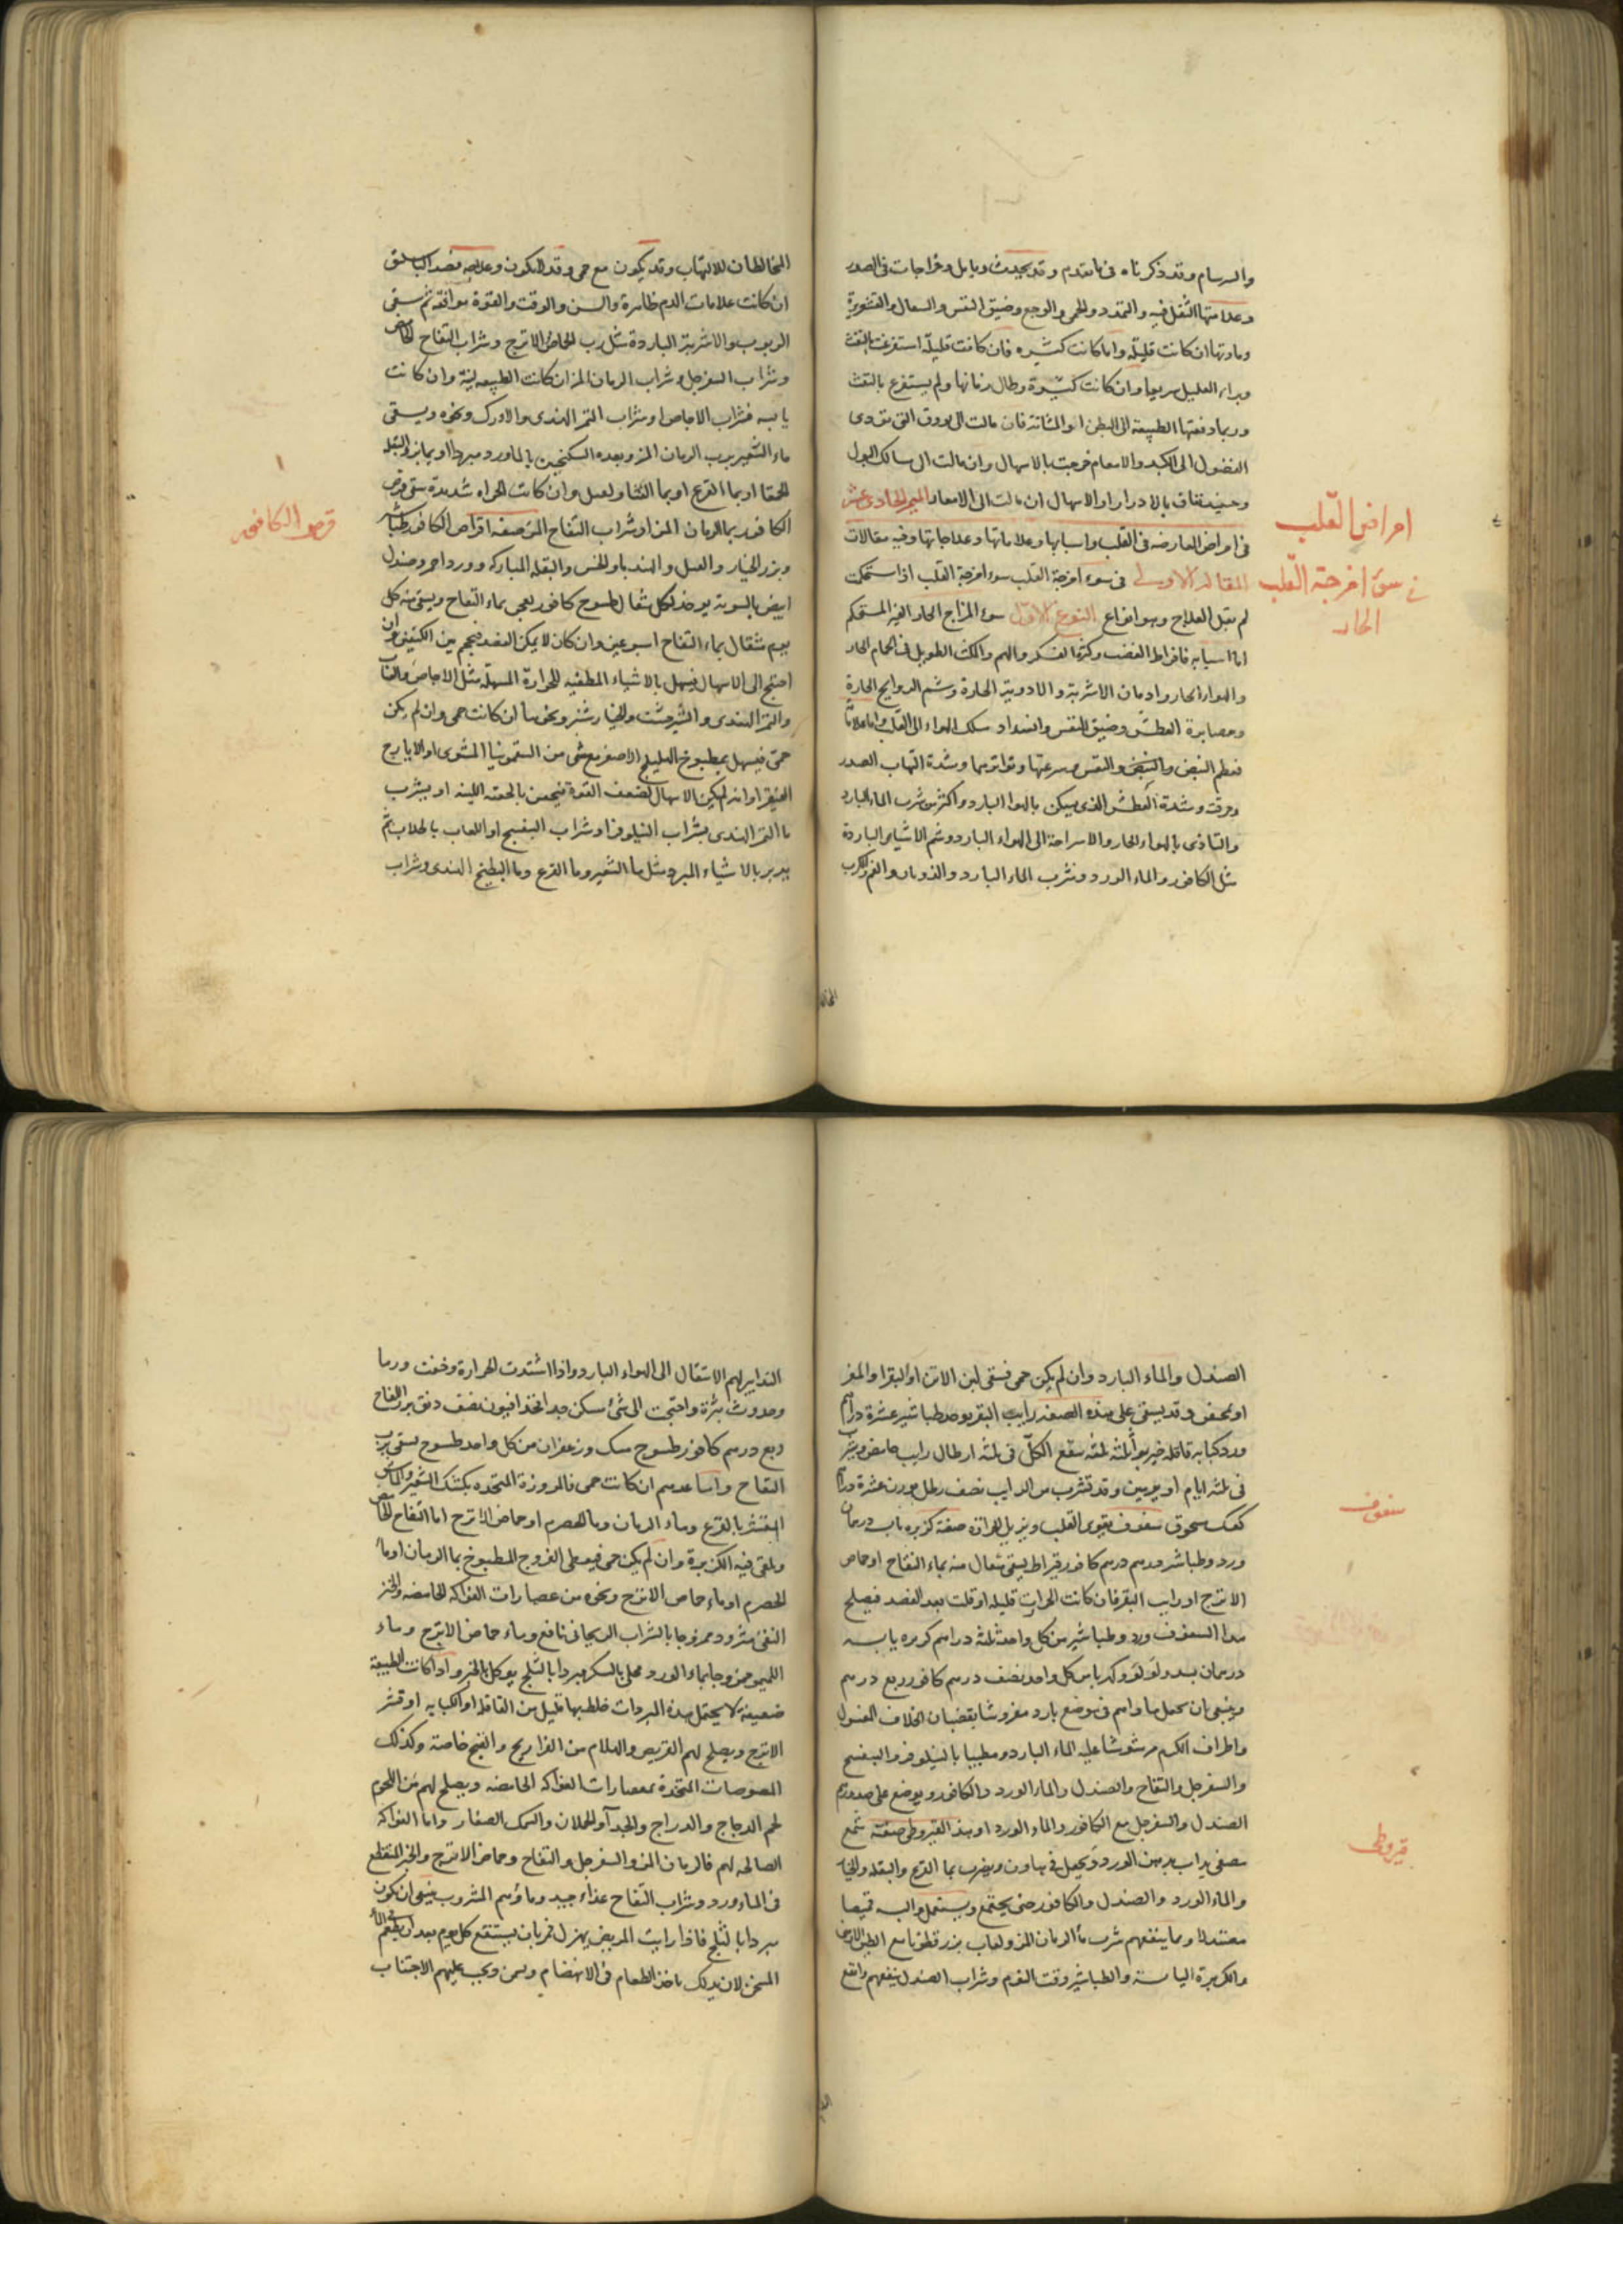 والسرسام وقد ذكرناه فى ما تقدم وقد يحدث دبابل وخراجات فى الصدر
وعلامتها الثقل فيه والتمدد والحمى والوجع وضيق النفس والسعال والقشعريرة
ومادتها ان كانت قليلة واما كانت كثيره فان كانت قليلة استفرغت بالنفث
وبراء العليل سريعا وان كانت كثيرة وطال زمانها ولم يستفرغ بالنفث
وربما دفعتها الطبيعة الى البطن او المثانة فان مالت الى العروق التى تؤدى
الفضول الى الكبد والامعاء خرجت بالاسهال وان مالت الى مسالك البول
وحينئذ تعان بالادرار او الاسهال ان مالت الى الامعاء الميمر الحادى عشر
فى امراض العارضه فى القلب واسبابها وعلاماتها وعلاجاتها وفيه مقالات
امراض القلب
المقالة الاولى فى سوء امزجة القلب سوء امزجة القلب اذا استحكمت
فى سوء امزجة القلب
الحار
لم تقبل العلاج وهو انواع النوع الاول سوء المزاج الحار الغير المستحكم
اما اسبابه فافراط الغضب وكثرة الفكر والهم والمكث الطويل فى الحمام الحار
والهواء الحار وادمان الاشربة والادوية الحارة وشم الروايح الحارة
ومصابرة العطش وضيق النفس وانسداد مسلك الهواء الى القلب واما علاماته
فعظم النبض والنفس وسرعتها وتواترهما وشدة التهاب الصدر
وحرقته وشدة العطش الذى يسكن بالهواء البارد واكثر من شرب الماء البارد
والتاذى بالهواء الحار والاستراحة الى الهواء البارد وشم الاشياء الباردة
مثل الكافور والماء الورد وشرب الماء البارد والذوبان والغم والكرب
المخالطان للالتهاب وقد يكون مع حمى وقد لا يكون وعلاجه فصد الباسليق
ان كانت علامات الدم ظاهرة والسن والوقت والقوة موافقة ثم يسقى
الربوب والاشربة الباردة مثل رب الحماض الاترج وشراب التفاح الحامض
وشراب السفرجل وشراب الرمان المز ان كانت الطبيعه لينة وان كانت
يابسه فشراب الاجاص او شراب التمر الهندى والاورك ونحوه ويسقى
ماء الشعير برب الرمان المز وبعده السكنجبين بالماورد مبردا او بماء بزر البقلة
الحمقا او بماء القرع او بماء القثا ولعسل وان كانت الحراره شديدة سقى قرص
الكافور بماء الرمان المز او شراب التفاح المز صفه اقراص الكافور طباشير
قرص الكافور
وبزر الخيار والعسل والهندبا والخس والبقلة المباركه وورد احمر وصندل
ابيض بالسوية يوخذ لكل مثقال طسوج كافور يعجن بماء التفاح ويسقى منه كل
يوم مثقال بماء التفاح اسبوعين وان كان لا يمكن الفصد فيحجم بين الكتفين وان
احتيج الى الاسهال فيسهل بالاشياء المطفيه للحرارة المسهلة مثل الاجاص والعناب
والتمر الهندى والشيرخشت والخيار شنبر ونحوها ان كانت حمى وان لم يكن
حمى فيسهل بمطبوخ الهليلج الاصفر مع شى من السقمونيا المشوى او الايارج
الفيقرا وان لم يمكن الاسهال لضعف القوة فيحقن بالحقنة اللينه او يشرب
ماء التمر الهندى بشراب النيلوفر او شراب البنفسج او اللعاب بالجلاب ثم
يدبر بالاشياء المبرده مثل ماء الشعير وماء القرع وماء البطيخ الهندى وشراب
الصندل والماء البارد وان لم يكن حمى فسقى لبن الاتن او البقر او المعز
او نحض وقد يسقى على هذه الصفه رايب البقر يوخذ طباشير عشرة دراهم
ورد كبابه قاقله خيربوا ثلثه ثلثه ينقع الكل فى ثلثه ارطال رايب حامض ويشرب
فى ثلثه ايام او يومين وقد تشرب من الرايب نصف رطل بوزن عشرة دراهم
كعك مسحوق سفوف يقوى القلب ويزيل الحرارة صفته كزبره يابسه درهمان
سفوف
ورد وطباشير درهم درهم كافور قيراط يسقى مثقال منه بماء التفاح او حماض
الاترج او رايب البقر فان كانت الحرارة قليله او قلت بعد الفصد فيصلح
هذا السفوف ورد وطباشير من كل واحد ثلثه دراهم كزبره يابسه
درهمان بسد ولولو وكهربا من كل واحد نصف درهم كافور ربع درهم
وينبغى ان يجعل ماواهم فى موضع بارد مفروشا بقضبان الخلاف المغسول
واطراف الكرم مرشوشا عليه الماء البارد ومطيبا بالنيلوفر والبنفسج
والسفرجل والتفاح والصندل والماء الورد والكافور ويوضع على صدورهم
الصندل والسفرجل مع الكافور والماء الورد او هذا القيروطى صفته شمع
قيروطى
مصفى يذاب بدهن الورد ويجعل فى هاون ويضرب بماء القرع والبقلة والخيار
والماء الورد والصندل والكافور حتى يجتمع ويستعمل والبسه قميصا
مصندلا ومما ينفعهم شرب ماء الرمان المز ولعاب بزر قطونا مع الطين الارمنى
والكزبرة اليابسة والطباشير وقت النوم وشراب الصندل ينفعهم وانفع
التدابير لهم الانتقال الى الهواء البارد واذا اشتدت الحرارة وخفت ورما
وحدوث بثرة واحتجت الى شئ مسكن جدا فخذ افيون نصف دانق بزر التفاح
ربع درهم كافور طسوج مسك وزعفران من كل واحد طسوج يسقى برب
التفاح واما غذاهم ان كانت حمى فالمزورة المتخذه بكشك الشعير والماش
المقشر بالقرع وماء الرمان وماء الحصرم او حماض الاترج اما التفاح الحامض
ويلقى فيه الكزبرة وان لم يكن حمى فيعطى الفروج المطبوخ بماء الرمان او ماء
الحصرم او ماء حماض الاترج ونحوه من عصارات الفواكه الحامضه والخبز
النقى مثرود ممزوجا بالشراب الريحانى نافع وماء حماض الاترج وماء
الليمو ممزوجا بماء الورد محلى بالسكر مبردا بالثلج يوكل بالخبز واذا كانت الطبيعة
ضعيفة لا يحتمل هذه المبردات خلط بها قليل من القاقله او الكبابه او قشر
الاترج ويصلح لهم القريص والهلام من الفراريج والقبج خاصة وكذلك
المصوصات المتخذة بعصارات الفواكه الحامضه ويصلح لهم من اللحوم
لحم الدجاج والدراج والجداء والحملان والسمك الصغار واما الفواكه
الصالحه لهم فالرمان المز والسفرجل والتفاح وحماض الاترج والخبز المنقع
فى الماء ورد وشراب التفاح غذاء جيد وماؤهم المشروب ينبغى ان يكون
مبردا بالثلج فاذا رايت المريض يهزل فمر بان يستنقع كل يوم بعد ان يطعم فى الماء
المسخن لان بذلك ياخذ الطعام فى الانهضام ويسمن ويجب عليهم الاجتناب